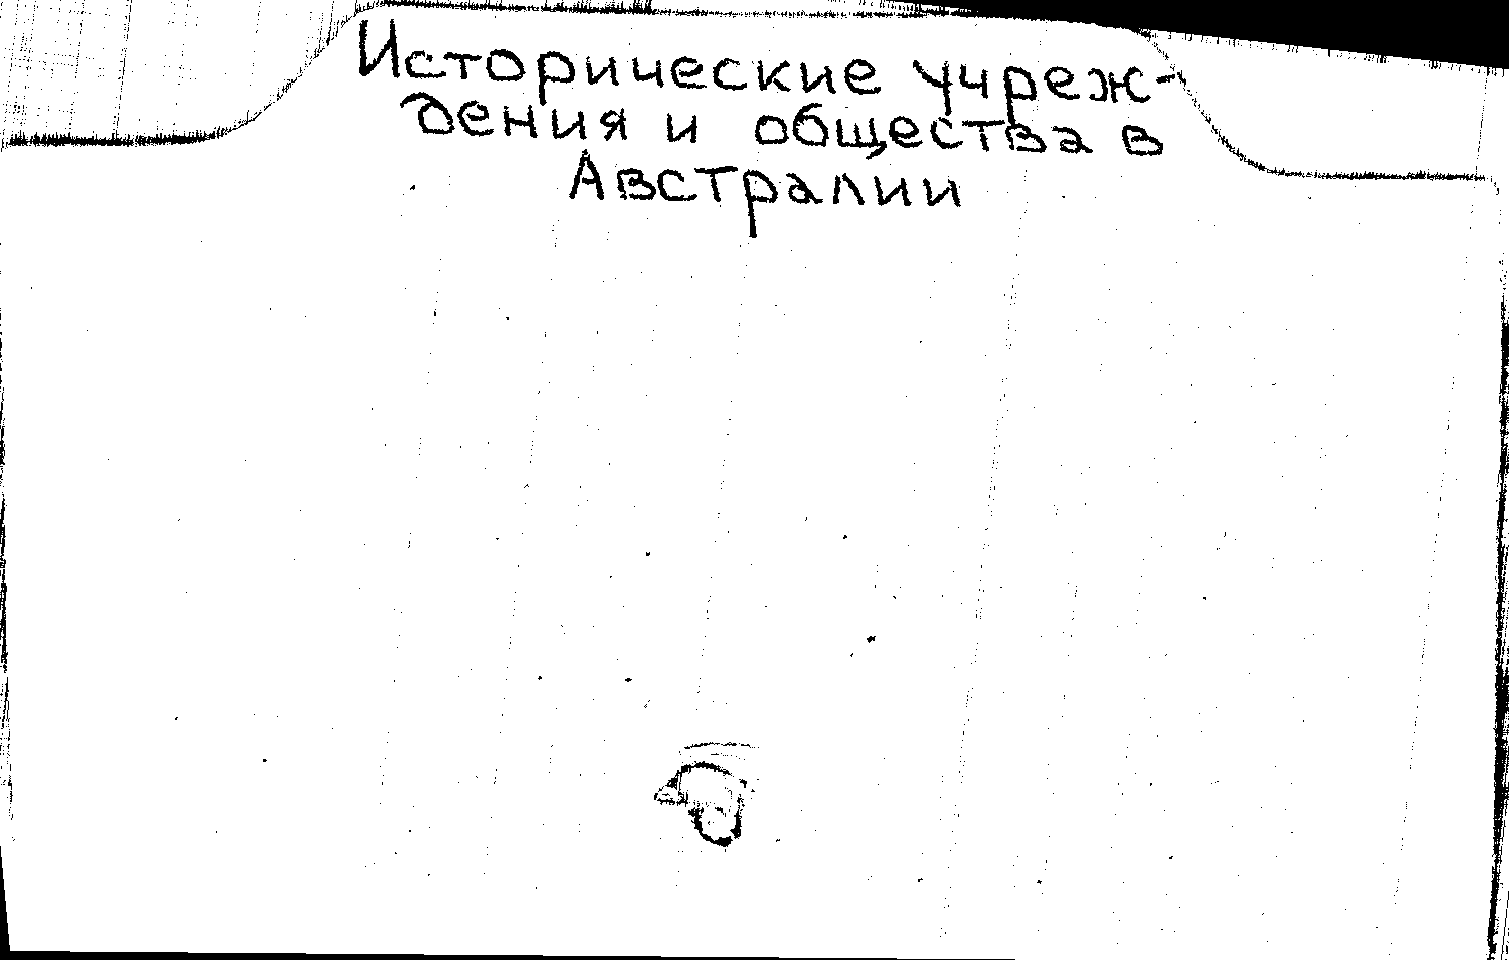 Исторические учреж-
дения и общества в
Австралии